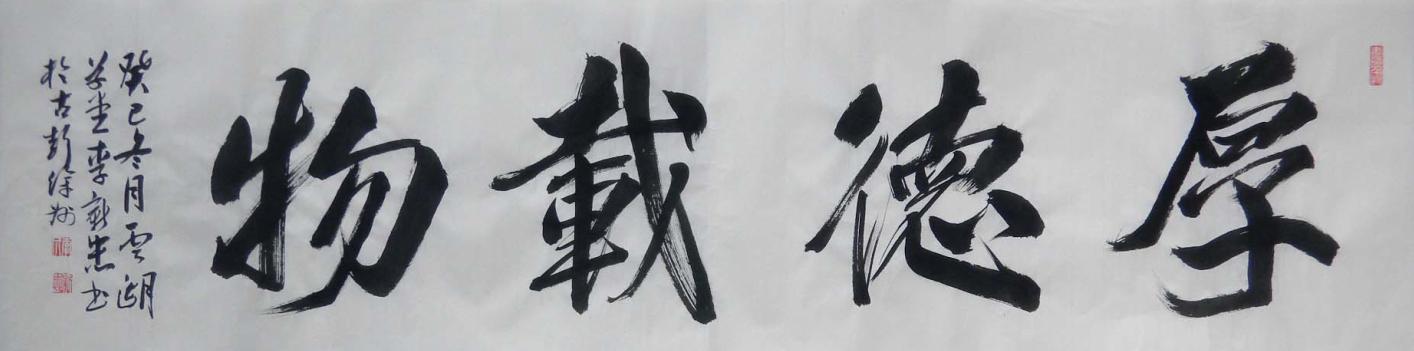 厚德載物
癸巳冬月雲湖
草堂李敬忠书
於古彭徐州